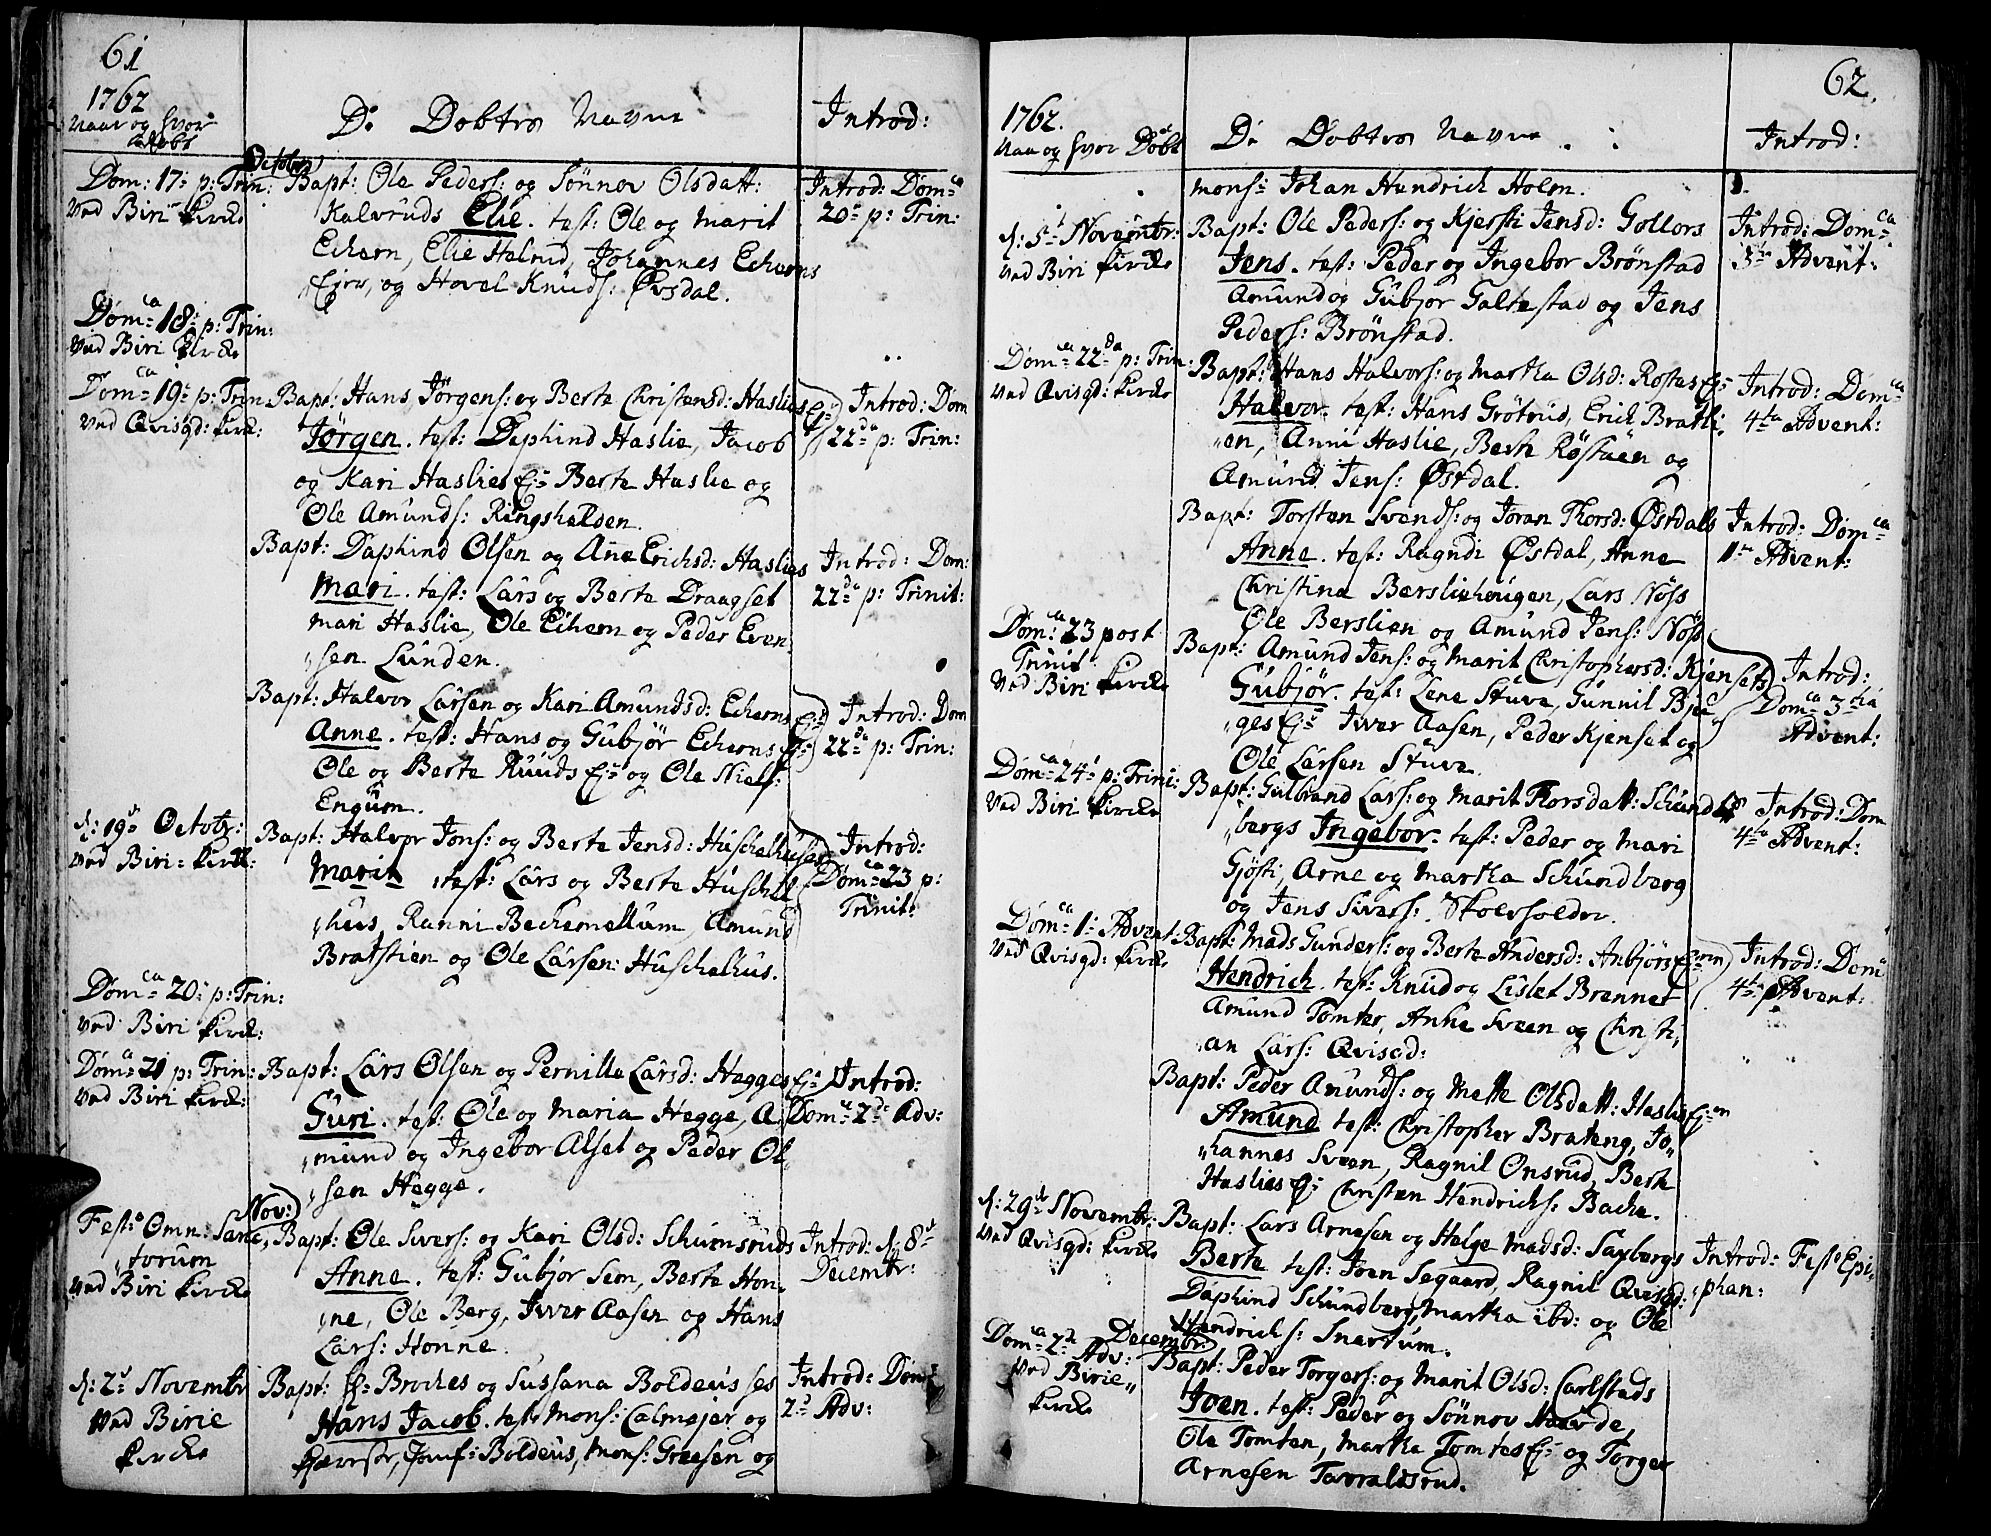 61
1762
Naar og hvor
døbt
De Døbtes Navne
Introd:
October
Dom: 17: p: Trin:
Ved Biri Kircke
Bapt: Ole Peders: og Sönnov Olsdatt:
Kalvruds Elie. test: Ole og Marit
Echern, Elie Helrud, Johannes Echerns
Ejer, og Hovel Knuds: Øvsdal.
Introd: Domca
20de p: Trin:
Domca 18de p: Trin:
Ved Biri Kircke
Domca 19de p: Trin
Ved Qvisgd: Kirck:
Bapt: Hans Jörgens: og Berte Christensd: Haslies Ej:
Jörgen. test: Daphind Haslie, Jacob
og Kari Haslies Ej: Berte Haslie og
Ole Amunds: Ringshalden.
Introd: Dom
22da p: Trin:
Bapt: Daphind Olsen og Ane Erichsd: Haslies
Mari. test: Lars og Berte Draagset
Mari Haslie, Ole Eihern og Peder Even,
"sen Lunden.
Introd: Dom:
22da p: Trinit:
Bapt: Halvor Larsen og Kari Amundsd: Echerns Ej:
Anne. test: Hans og Gubjör Echerns Ej:
Ole og Berte Ruuds Ej: og Ole Niels:
Engum.
Introd: Dom
22da p: Trin:
d: 19de Octobr:
Ved Biri: Kirck:
Bapt: Halvor Jons: og Berte Jensd: Huschelhuser
Marit test: Lars og Berte Huschel
"hus, Ranni Bechemellum, Amund
Bratstien og Ole Larsen: Huschelhus.
Introd:
Domca 23 p:
Trinit:
Domca 20de p: Trin:
Ved Biri Kirck:
Domca 21 p: Trin:
Ved Biri Kirck:
Bapt: Lars Olsen og Pernille Larsd: Hegges Ej:
Guri. test: Ole og Maria Hegge, A,
"mund og Ingebor Alset og Peder Ol,
"sen Hegge.
Introd:
Domca 2de Adv:
Nov:
Festo Omn: Sanc,
"torum
Ved Biri Kircke
Bapt: Ole Ivers: og Kari Olsd: Schumsruds
Anne. test: Gubjör Sem, Berte Hon,
"ne, Ole Berg, Iver Aasen og Hans
Lars: Honne.
Introd: d: 8de
Decembr:
d: 2de Novembr
Ved Birie
Kircke
Bapt: Hr: Broches og Sussana Boldeus ses
Hans Jacob. test: Mons: Calmejer og
Kjæreste, Jomf: Boldeus, Mons: Greesen og
Introd: Domca
2de Adv:
62.
1762.
Naar og hvor Døbt
De Døbtes Navne
Introd:
Mons: Johan Hendrich Holm.
d: 5te Novembr:
Ved Biri Kircke
Bapt: Ole Peders: og Kjersti Jensd: Gollors
Jens. test: Peder og Ingebor Brönstad
Amund og Gubjor Galtestad og Jens
Peders: Brönstad.
Introd: Domca
3tia Advent:
Domca 22da p: Trin:
Ved Qvisgd: Kircke
Bapt: Hans Halvors: og Martha Olsd: Rostas Ej:
Halvor. test: Hans Grötrud, Erich Bratli,
"en, Anni Haslie, Berte Röstaen og
Amund Jens: Østdal.
Introd: Domca
4ta Advent:
Bapt: Torsten Svends: og Joran Thorsd: Østdals
Anne. test: Ragndi Østdal, Anne
Christina Berslinhougen, Lars Nöss
Ole Berslien og Amund Jens: Nöss
Introd: Domca
1ma Advent:
Domca 23 post
Trinit:
Ved Biri Kircke
Bapt: Amund Jens: og Marit Christophersd: Kjensets
Gubjör. test: Lene Stuve, Gunnil Bjer
"ges Ej: Iver Aasen, Peder Kjenset og
Ole Larsen Stuve.
Introd:
Domca 3tia
Advent:
Domca 24de p: Trini:
Ved Biri Kircke
Bapt: Gulbrand Lars: og Marit Thorsdatt: Schund
"bergs Ingebor. test: Peder og Mari
Gjösti, Arne og Martha Schundberg
og Jens Ivers: Skoleholder.
Introd: Dom
4ta Advent:
Domca 1: Advent:
Ved Qvisgd: Kircke
Bapt: Mads Gunders: og Berte Andersd: Anbjörs Ej:
Hendrich. test: Knud og Lislet Brennet
Amund Tomter, Anne Sveen og Christi,
"an Lars: Qvisgd:
Introd: Dom
4ta Advent:
Bapt: Peder Amunds: og Mette Olsdatt: Haslie Ej:
Amund test: Christopher Brateng, Jo,
"hannes Sveen, Ragnil Onsrud, Berte
Haslies Ej: Christen Hendrichs: Bache.
d: 29de Novembr:
Ved Qvisgd: Kircke
Bapt: Lars Arnesen og Helge Madsd: Saxbergs
Berte test: Joen Segaard, Ragnil Qvisgd:
Daphind Schundberg, Martha ibd: og Ole
Hendrichs: Snartum.
Introd: Festo Epi,
"phan:
Decembr:
Domca 2da Adv:
Ved Birie
Kircke
Bapt: Peder Torgers: og Marit Olsd: Carlstads
Joen. test: Peder og Sönnov
Ole Tomten, Martha Tomtes Ej: og Torger
Arnesen Tavraldsrud.